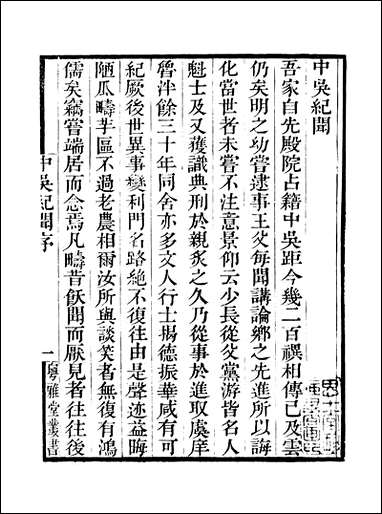 中吳紀聞
吾家自先殿院占籍中吳距今幾二百禩相傳已及雲
仍矣明之幼嘗逮事王父每聞講論鄉之先進所以誨
化當世者未嘗不注意景仰云少長從父黨游皆名人
魁士及又獲識典刑於親炙之久乃從事於進取虞庠
魯泮餘三十年同舍亦多文人行士揚德振華咸有可
紀厥後世異事變利門名路絶不復往由是聲迹益晦
陋瓜疇芋區不過老農相爾汝所與談笑者無復有鴻
儒矣竊嘗端居而念焉凡疇昔飫聞而厭見者往往後
中吳紀聞序
一
粵雅堂叢書